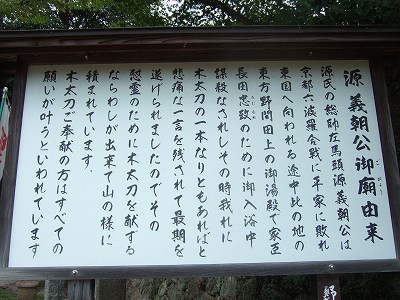 源義朝公御廟由来
ごびょう
源氏の総帥左馬頭源義朝公は
京都六波羅合戦に平家に敗れ
東国へ向われる途中此の地の
東方野間田上の御湯殿で家臣
長田忠致のために御入浴中
謀殺なされしその時我れに
木太刀の一本なりともあればと
悲痛な一言を残されて最期を
遂げられましたのでその
慰霊のために木太刀を献する
ならわしが出来て山の様に
積まれています．
木太刀ご奉献の方はすべての
願いが叶うといわれています
野